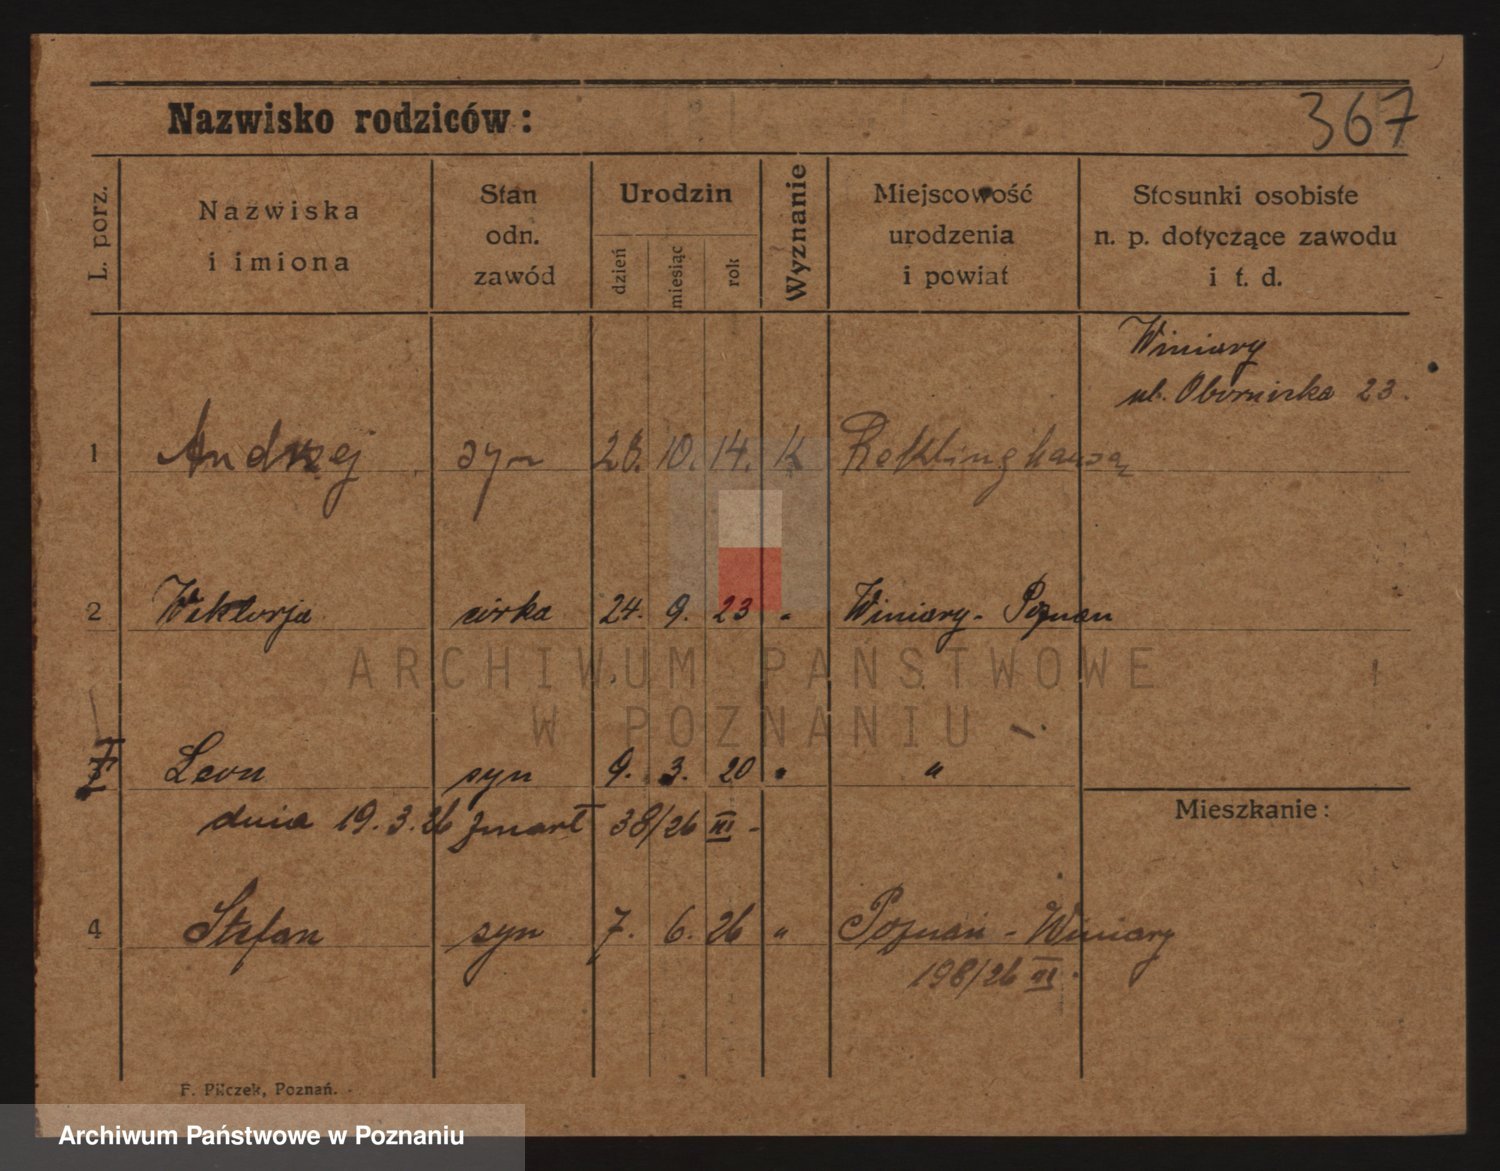 Nazwisko rodziców:
367
L. porz.
Nazwiska
i imiona
Stan
odn.
zawód
Urodzin
dzień
miesiąc
rok
Wyznanie
Miejscowość
urodzenia
i powiat
Stosunki osobiste
n. p. dotyczące zawodu
i t. d.
Winiary
ul. Obornicka 23.
1 Andrzej syn 28. 10. 14. K Reklinghausen
2 Wiktorja córka 24. 9. 23 " Winiary - Poznan
ARCHIWUM PAŃSTWOWE
W POZNANIU
Leon syn 9. 3. 20 " "
dnia 19. 3. 26 zmarł 38/26 III -
Mieszkanie:
4 Stefan syn 7. 6. 26 " Poznań - Winiary
198/26 III.
F. Pilczek, Poznań.
Archiwum Państwowe w Poznaniu